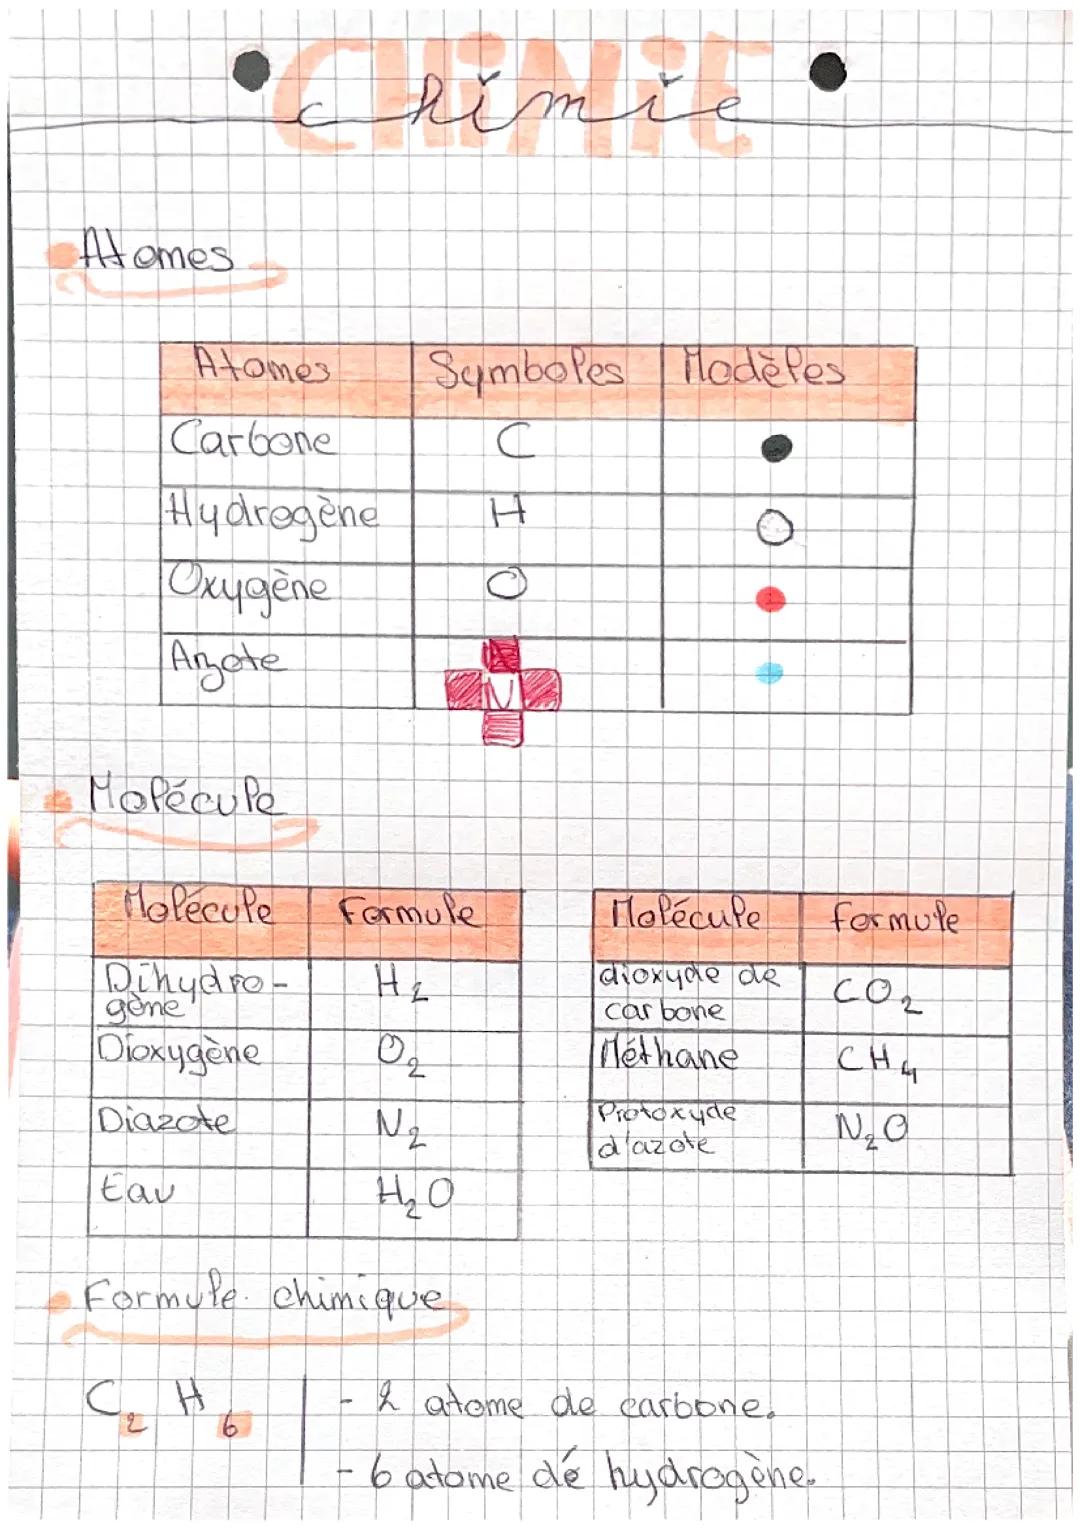 CHIMIE
chimie
Atomes
Atomes Symboles Modèles
Carbone C
Hydrogène H
Oxygène O
Azote N
Molécule
Molécule Formule
Dihydro-
gène H2
Dioxygène O2
Diazote N2
Eau H2O
Molécule formule
dioxyde de
carbone CO2
Méthane CH4
Protoxyde
d'azote N2O
Formule chimique
C2 H6
- 2 atome de carbone.
- 6 atome dé hydrogène.